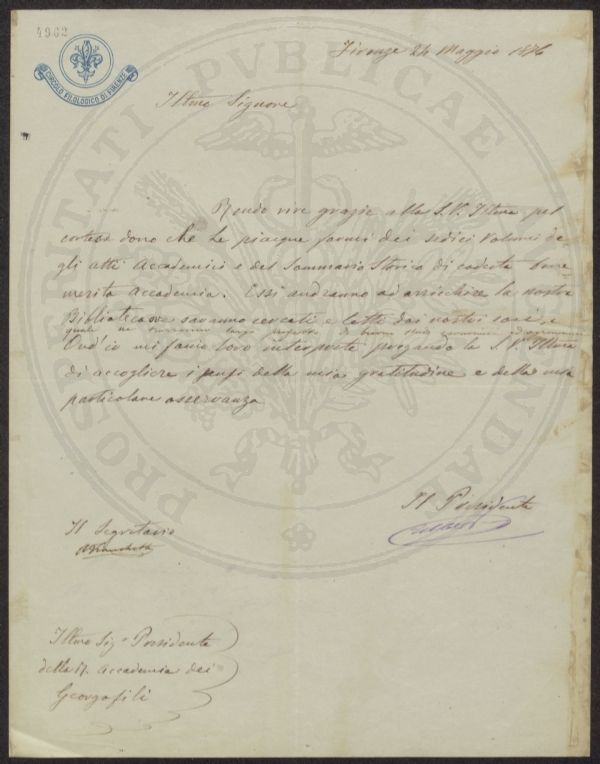 4962
CIRCOLO FILOLOGICO DI FIRENZE
Firenze 24 Maggio 1876
Illmo Signore
Rendo vive grazie alla S.V. Illma pel
cortese dono che Le piacque farmi dei sedici volumi de
gli atti Accademici e del Sommario Storico di codesta bene
merita Accademia. Essi andranno ad arricchire la nostra
Biblioteca ove saranno cercati e letti dai nostri soci, i
quali ne trarranno largo di buoni studi ed
Ond'io mi faccio loro interprete pregando la S.V. Illma
di accogliere i sensi della mia gratitudine e della mia
particolare osservanza
Il Presidente
Il Segretario
Illmo Sig. Presidente
della R. Accademia dei
Georgofili
PROSPERITATI PVBLICAE AVGENDAE